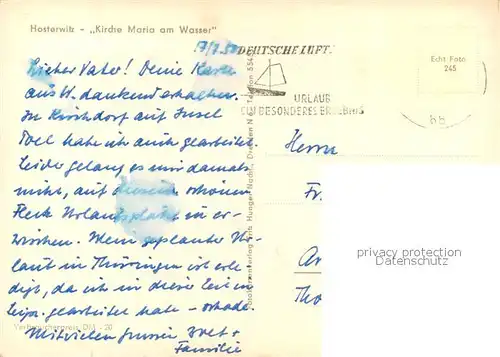 Hosterwitz - „Kirche Maria am Wasser"
DEUTSCHE LUFT
URLAUB
EIN BESONDERES ERLEBNIS
Echt Foto
245
Lieber Vater! Deine Karte
aus W. dankend erhalten.
In Kirchdorf auf Insel
Poel habe ich auch gearbeitet.
Leider gelang es mir damals
nicht, auf diesem schönen
Fleck Urlaubsplätze zu er-
wischen. Mein geplanter Ur-
laub in Thüringen ist erle-
digt, da ich in dieser Zeit in
Leipz. gearbeitet habe - schade.
Mit vielen Grüssen
Familie
Herrn
Fr
Ar
Tho
privacy protection
Datenschutz
Verbraucherpreis DM -,20